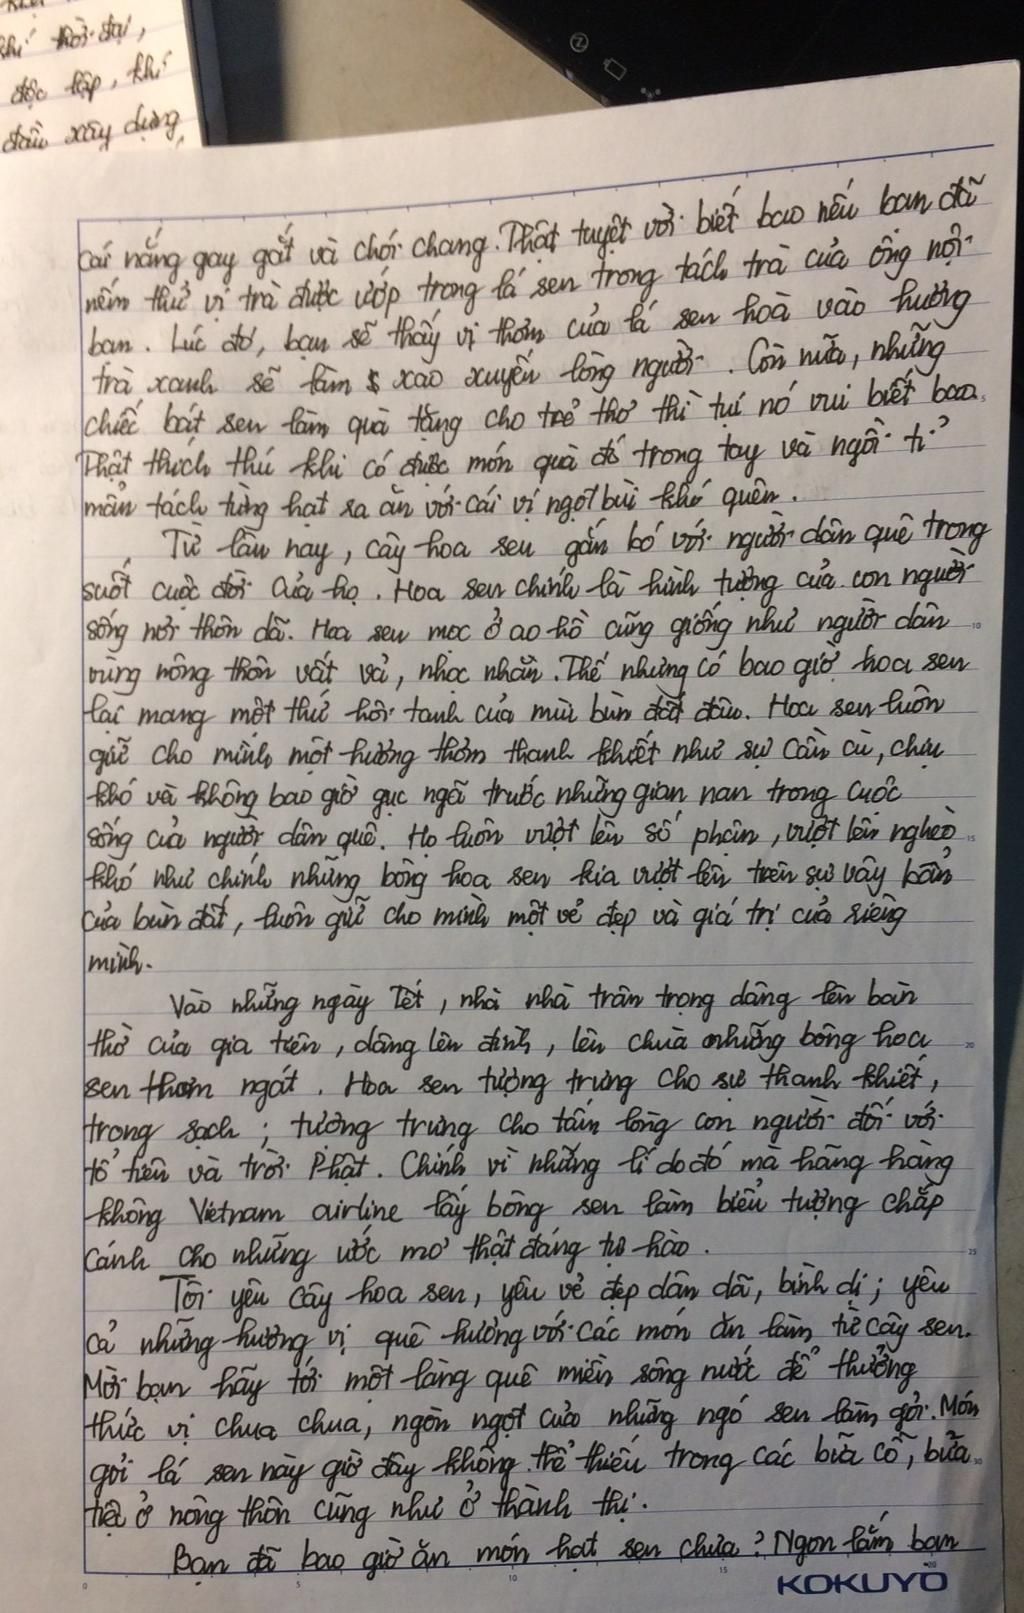 khí thời đại,
độc lập, khí
đầu xây dựng
cái nắng gay gắt và chói chang. Thật tuyệt vời biết bao nếu bạn đã
nếm thử vị trà được ướp trong lá sen trong tách trà của ông nội
bạn. Lúc đó, bạn sẽ thấy vị thơm của lá sen hoà vào hương
trà xanh sẽ làm xao xuyến lòng người. Còn nữa, những
chiếc bát sen làm quà tặng cho trẻ thơ thì tụi nó vui biết bao.
Thật thích thú khi có được món quà đó trong tay và ngồi tỉ
mẩn tách từng hạt ra ăn với cái vị ngọt bùi khó quên.
Từ lâu nay, cây hoa sen gắn bó với người dân quê trong
suốt cuộc đời của họ. Hoa sen chính là hình tượng của con người
sống nơi thôn dã. Hoa sen mọc ở ao hồ cũng giống như người dân
vùng nông thôn vất vả, nhọc nhằn. Thế nhưng có bao giờ hoa sen
lại mang một thứ hôi tanh của mùi bùn đất đâu. Hoa sen luôn
giữ cho mình một hương thơm thanh khiết như sự cần cù, chịu
khó và không bao giờ gục ngã trước những gian nan trong cuộc
sống của người dân quê. Họ luôn vượt lên số phận, vượt lên nghèo
khó như chính những bông hoa sen kia vượt lên trên sự vây bẩn
của bùn đất, luôn giữ cho mình một vẻ đẹp và giá trị của riêng
mình.
Vào những ngày Tết, nhà nhà trân trọng dâng lên bàn
thờ của gia tiên, dâng lên đình, lên chùa những bông hoa
sen thơm ngát. Hoa sen tượng trưng cho sự thanh khiết,
trong sạch; tượng trưng cho tấm lòng con người đối với
tổ tiên và trời Phật. Chính vì những lí do đó mà hãng hàng
không Vietnam airline lấy bông sen làm biểu tượng chắp
cánh cho những ước mơ thật đáng tự hào.
Tôi yêu cây hoa sen, yêu vẻ đẹp dân dã, bình dị; yêu
cả những hương vị quê hương với các món ăn làm từ cây sen.
Mời bạn hãy tới một làng quê miền sông nước để thưởng
thức vị chua chua, ngòn ngọt của những ngó sen làm gỏi. Món
gỏi lá sen này giờ đây không thể thiếu trong các bữa cỗ, bữa
tiệc ở nông thôn cũng như ở thành thị.
Bạn đã bao giờ ăn món hạt sen chưa? Ngon lắm bạn
KOKUYO